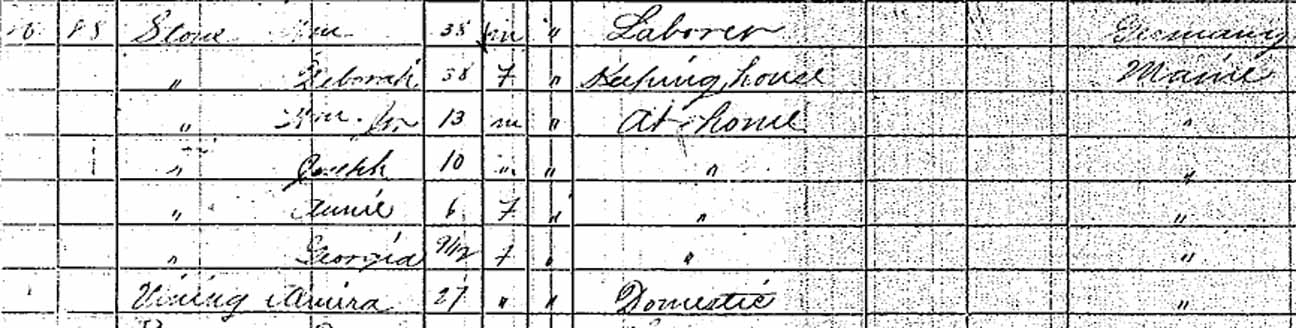 Stone Wm 38 m " Laborer Germany
" Deborah 38 F " Keeping house Maine
" Wm. Jr 13 m " At home "
" Joseph 10 " " " "
" Annie 6 F " " "
" Georgia F " " "
Vining 27 " " Domestic "